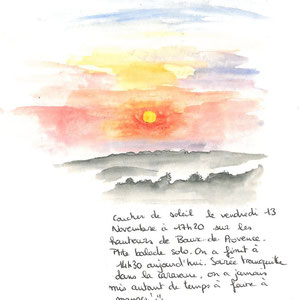 Coucher de soleil le vendredi 13
Novembre à 17h20 sur les
hauteurs de Baux de Provence.
Ptite balade solo. On a finit à
14h30 aujourd'hui. Soirée tranquille
dans la caravane, on a jamais
mis autant de temps à faire à
manger!!